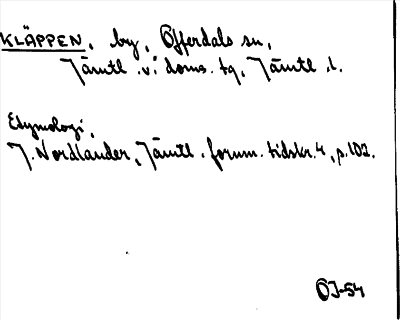 KLÄPPEN, by, Offerdals sn,
Jämtl. v. doms. tg, Jämtl. l.
Etymologi.
J. Nordlander, Jämtl. fornm. tidskr. 4, p. 102.
ÖJ-54